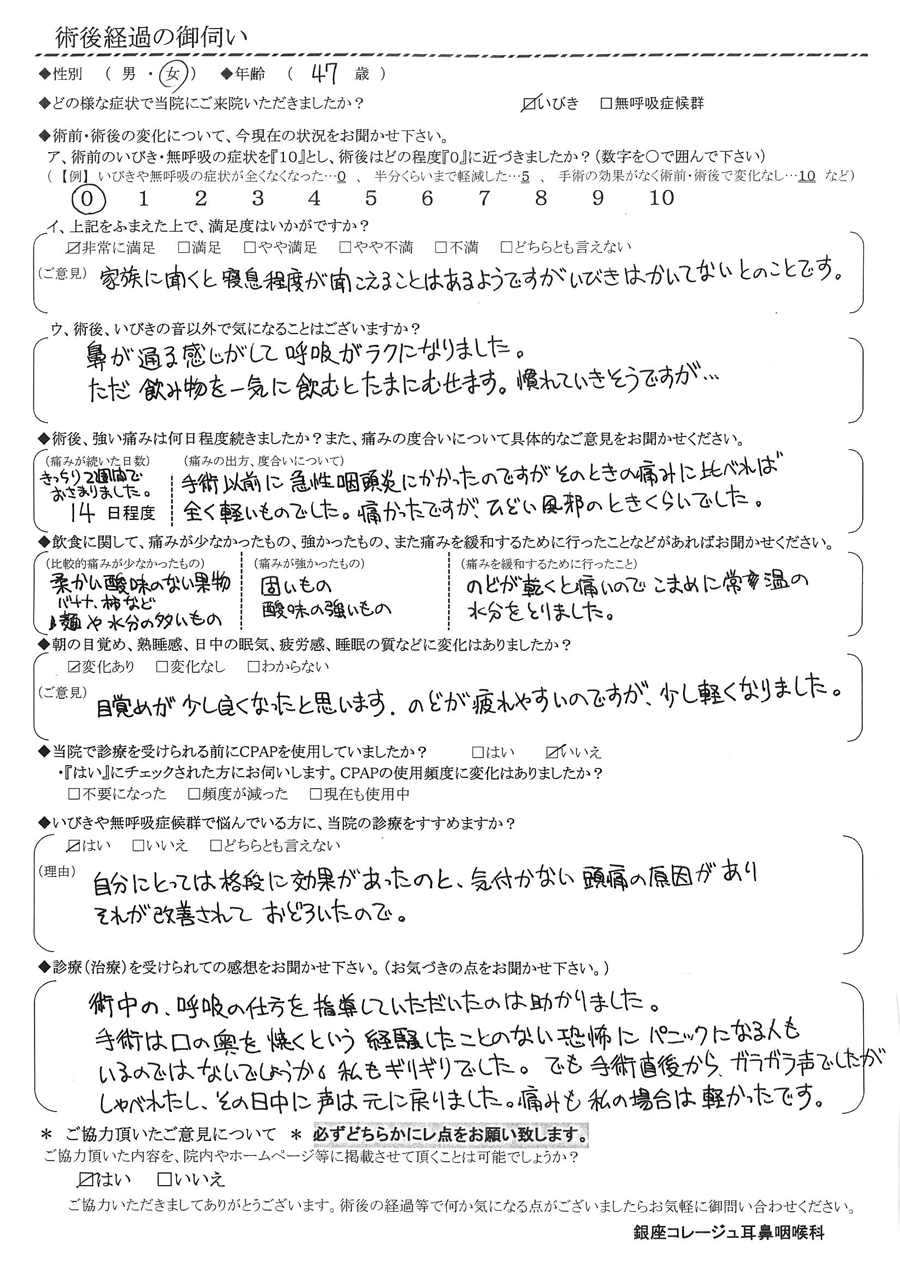 術後経過の御伺い
◆性別 ( 男 ・ 女 ) ◆年齢 ( 47 歳 )
◆どの様な症状で当院にご来院いただきましたか? ☑いびき □無呼吸症候群
◆術前・術後の変化について、今現在の状況をお聞かせ下さい。
ア、術前のいびき・無呼吸の症状を『10』とし、術後はどの程度『0』に近づきましたか?(数字を○で囲んで下さい)
( 【例】 いびきや無呼吸の症状が全くなくなった…0 、 半分くらいまで軽減した…5 、 手術の効果がなく術前・術後で変化なし…10 など)
0 1 2 3 4 5 6 7 8 9 10
イ、上記をふまえた上で、満足度はいかがですか?
☑非常に満足 □満足 □やや満足 □やや不満 □不満 □どちらとも言えない
(ご意見) 家族に聞くと寝息程度が聞こえることはあるようですがいびきはかいてないとのことです。
ウ、術後、いびきの音以外で気になることはございますか?
鼻が通る感じがして呼吸がラクになりました。
ただ飲み物を一気に飲むとたまにむせます。慣れていきそうですが…
◆術後、強い痛みは何日程度続きましたか?また、痛みの度合いについて具体的なご意見をお聞かせください。
(痛みが続いた日数) (痛みの出方、度合いについて)
きっちり2週間で
おさまりました。
14 日程度
手術以前に急性咽頭炎にかかったのですがそのときの痛みに比べれば
全く軽いものでした。痛かったですが、ひどい風邪のときくらいでした。
◆飲食に関して、痛みが少なかったもの、強かったもの、また痛みを緩和するために行ったことなどがあればお聞かせください。
(比較的痛みが少なかったもの) (痛みが強かったもの) (痛みを緩和するために行ったこと)
柔かい酸味のない果物
バナナ、柿など
麺や水分の多いもの
固いもの
酸味の強いもの
のどが乾くと痛いのでこまめに常温の
水分をとりました。
◆朝の目覚め、熟睡感、日中の眠気、疲労感、睡眠の質などに変化はありましたか?
☑変化あり □変化なし □わからない
(ご意見) 目覚めが少し良くなったと思います。のどが疲れやすいのですが、少し軽くなりました。
◆当院で診療を受けられる前にCPAPを使用していましたか? □はい ☑いいえ
・『はい』にチェックされた方にお伺いします。CPAPの使用頻度に変化はありましたか?
□不要になった □頻度が減った □現在も使用中
◆いびきや無呼吸症候群で悩んでいる方に、当院の診療をすすめますか?
☑はい □いいえ □どちらとも言えない
(理由) 自分にとっては格段に効果があったのと、気付かない頭痛の原因があり
それが改善されておどろいたので。
◆診療(治療)を受けられての感想をお聞かせ下さい。(お気づきの点をお聞かせ下さい。)
術中の、呼吸の仕方を指導していただいたのは助かりました。
手術は口の奥を焼くという経験したことのない恐怖にパニックになる人も
いるのでは、ないでしょうか。私もギリギリでした。でも手術直後から、ガラガラ声でしたが
しゃべれたし、その日中に声は元に戻りました。痛みも私の場合は軽かったです。
* ご協力頂いたご意見について * 必ずどちらかにレ点をお願い致します。
ご協力頂いた内容を、院内やホームページ等に掲載させて頂くことは可能でしょうか?
☑はい □いいえ
ご協力いただきましてありがとうございます。術後の経過等で何か気になる点がございましたらお気軽に御問い合わせください。
銀座コレージュ耳鼻咽喉科